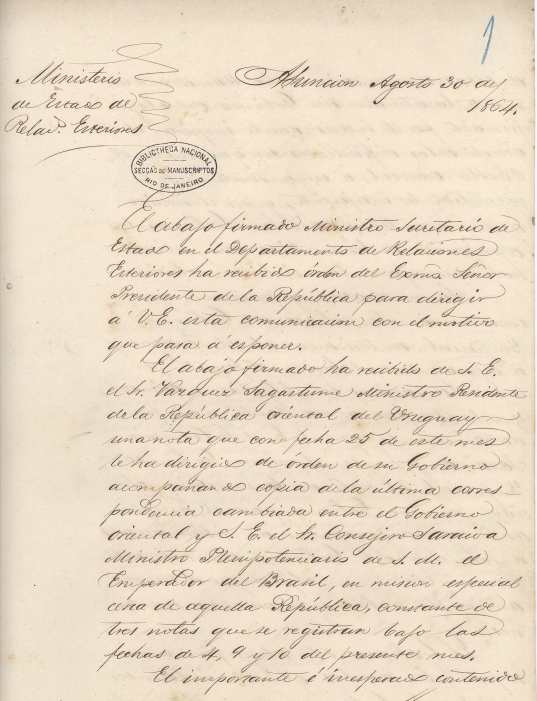 1
Ministerio
de Estado de
Relacs. Esteriores
Asuncion Agosto 30 de
1864.
BIBLIOTHECA NACIONAL
SECÇÃO DE MANUSCRIPTOS
RIO DE JANEIRO
El abajo firmado Ministro Secretario de
Estado en el Departamento de Relaciones
Esteriores ha recibido órden del Exmo Señor
Presidente de la República para dirigir
á V. E. esta comunicacion con el motivo
que pasa á esponer.
El abajo firmado ha recibido de S. E.
el Sr. Vazquez Sagastume Ministro Residente
de la República oriental del Uruguay
una nota que con fecha 25 de este mes
le ha dirigido de órden de su Gobierno
acompañando copia de la última corres-
pondencia cambiada entre el Gobierno
oriental y S. E. el Sr. Consejero Saraiva
Ministro Plenipotenciario de S. M. el
Emperador del Brasil, en mision especial
cerca de aquella República, constante de
tres notas que se registran bajo las
fechas de 4, 9 y 10 del presente mes.
El importante é inesperado contenido